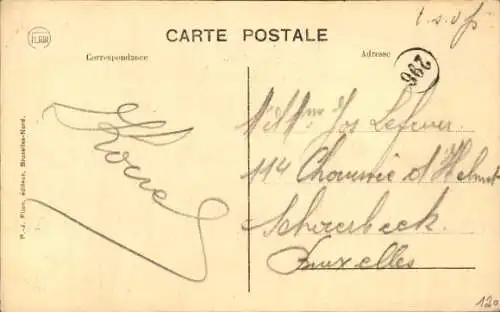 t.s.v.p
CARTE POSTALE
Correspondance
Adresse
296
Mme Jos Lefever
114 Chaussée d'Helmet
Schaerbeek
Bruxelles
P.-J. Flion, éditeur, Bruxelles-Nord.
120